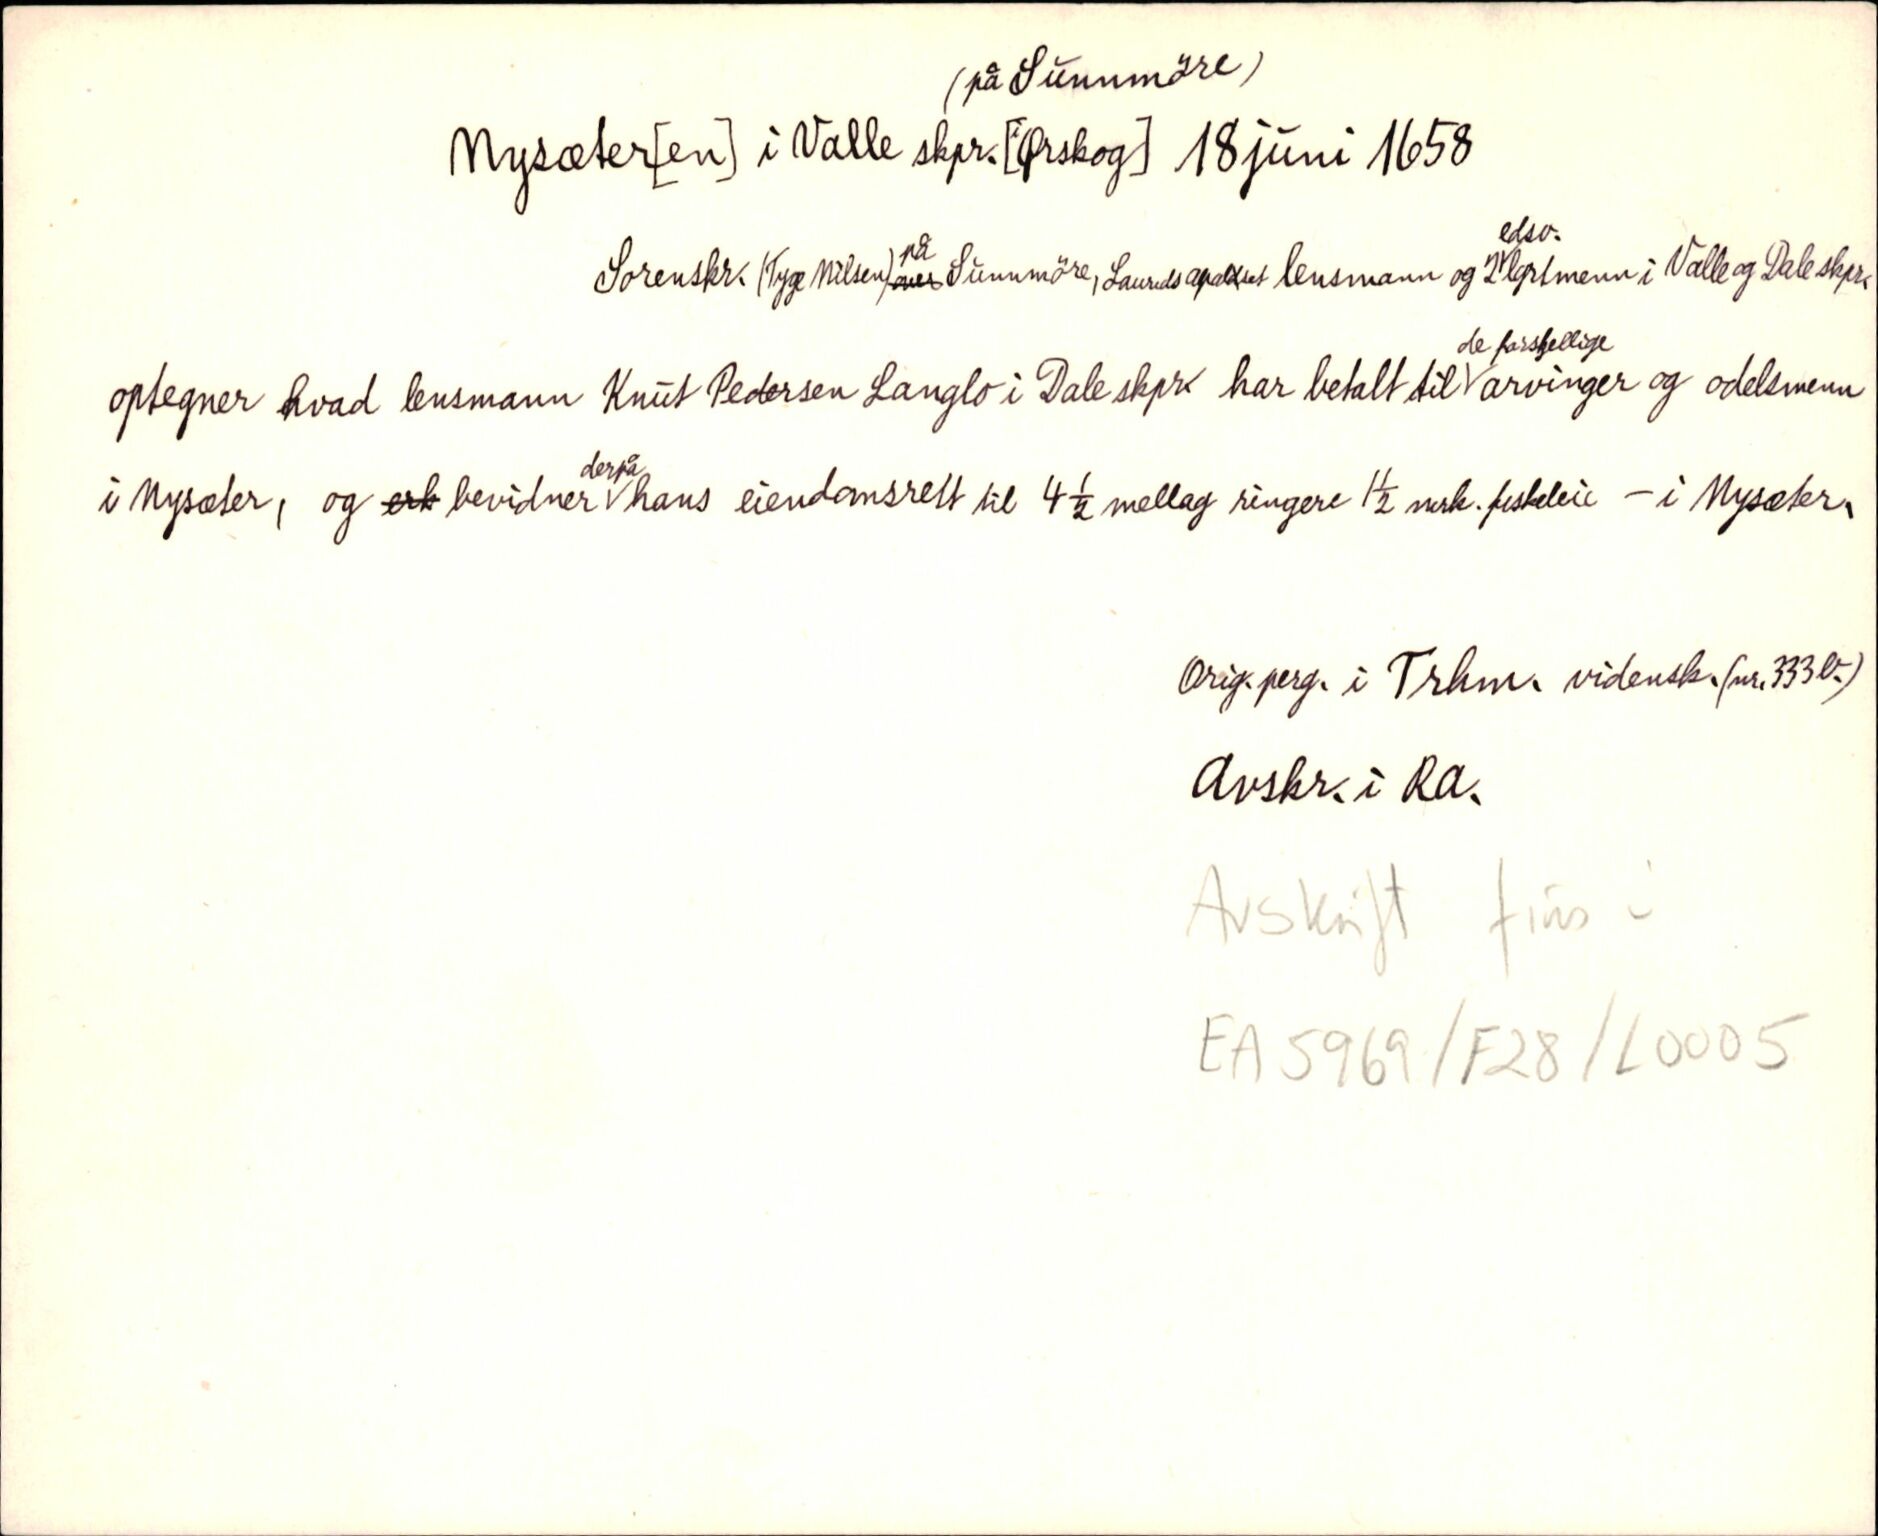 (på Sunnmöre)
Nysæter[en] i Valle skpr. [Ørskog] 18 juni 1658
edsv.
Sorenskr. (Tyge Nilsen) over på Sunnmöre, Laurids apaldset lensmann og 2 lgrtmenn i Valle og Dale skpr.
de forskjellige
optegner hvad lensmann Knut Pedersen Langlo i Dale skpr. har betalt til arvinger og odelsmenn
derpå
i Nysæter, og erk bevidner hans eiendomsrett til 4 1/2 mellag ringere 1 1/2 mrk. fiskeleie – i Nysæter.
Orig. perg. i Trhm. vidensk. (nr. 333 b.)
Avskr. i RA.
Avskrift fins i
EA 5969/F28/L0005